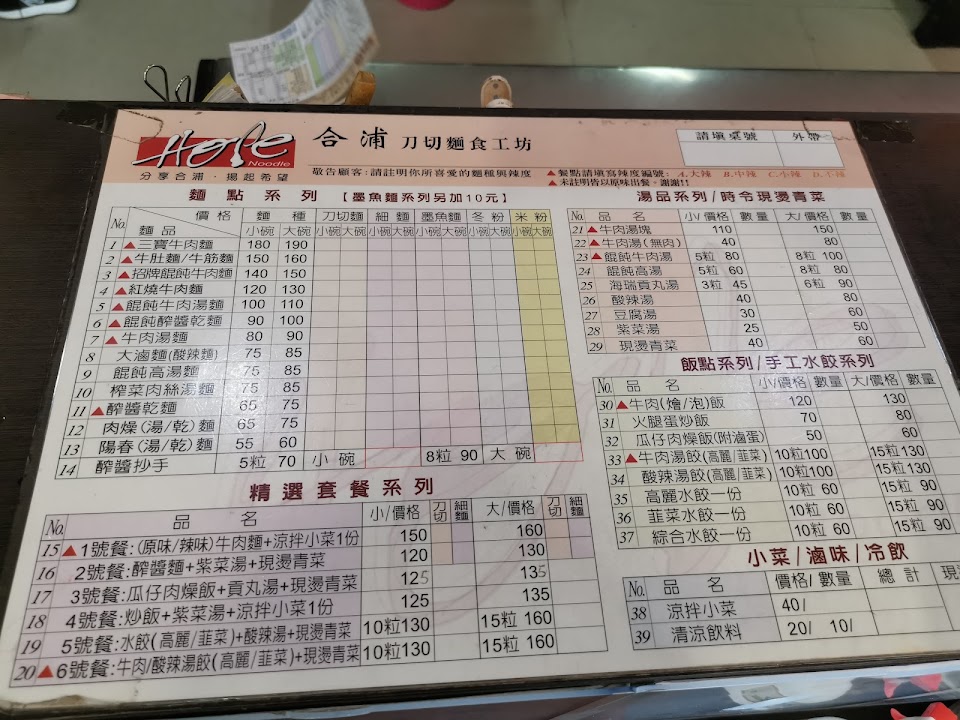 Hope
Noodle
分享合浦．揚起希望
合浦 刀切麵食工坊
敬告顧客:請註明你所喜愛的麵種與辣度
請填桌號 外帶
▲餐點請填寫辣度編號: A.大辣 B.中辣 C.小辣 D.不辣
▲未註明皆以原味出餐,謝謝!!
麵點系列【墨魚麵系列另加10元】
No. 價格 麵品 麵種 刀切麵 細麵 墨魚麵 冬粉 米粉
小碗 大碗 小碗 大碗 小碗 大碗 小碗 大碗 小碗 大碗 小碗 大碗
1 ▲三寶牛肉麵 180 190
2 ▲牛肚麵/牛筋麵 150 160
3 ▲招牌餛飩牛肉麵 140 150
4 ▲紅燒牛肉麵 120 130
5 ▲餛飩牛肉湯麵 100 110
6 ▲餛飩醡醬乾麵 90 100
7 ▲牛肉湯麵 80 90
8 大滷麵(酸辣麵) 75 85
9 餛飩高湯麵 75 85
10 榨菜肉絲湯麵 75 85
11 ▲醡醬乾麵 65 75
12 肉燥(湯/乾)麵 65 75
13 陽春(湯/乾)麵 55 60
14 醡醬抄手 5粒 70 小碗 8粒 90 大碗
精選套餐系列
No. 品名 小/價格 刀切 細麵 大/價格 刀切 細麵
15 ▲1號餐:(原味/辣味)牛肉麵+涼拌小菜1份 150 160
16 2號餐:醡醬麵+紫菜湯+現燙青菜 120 130
17 3號餐:瓜仔肉燥飯+貢丸湯+現燙青菜 125 135
18 4號餐:炒飯+紫菜湯+涼拌小菜1份 125 135
19 5號餐:水餃(高麗/韮菜)+酸辣湯+現燙青菜 10粒130 15粒 160
20 ▲6號餐:牛肉/酸辣湯餃(高麗/韮菜)+現燙青菜 10粒130 15粒 160
湯品系列/時令現燙青菜
No. 品名 小/價格 數量 大/價格 數量
21 ▲牛肉湯塊 110 150
22 ▲牛肉湯(無肉) 40 80
23 ▲餛飩牛肉湯 5粒 80 8粒 100
24 餛飩高湯 5粒 60 8粒 80
25 海瑞貢丸湯 3粒 45 6粒 90
26 酸辣湯 40 80
27 豆腐湯 30 60
28 紫菜湯 25 50
29 現燙青菜 40 60
飯點系列/手工水餃系列
No. 品名 小/價格 數量 大/價格 數量
30 ▲牛肉(燴/泡)飯 120 130
31 火腿蛋炒飯 70 80
32 瓜仔肉燥飯(附滷蛋) 50 60
33 ▲牛肉湯餃(高麗/韮菜) 10粒100 15粒130
34 酸辣湯餃(高麗/韮菜) 10粒100 15粒130
35 高麗水餃一份 10粒 60 15粒 90
36 韮菜水餃一份 10粒 60 15粒 90
37 綜合水餃一份 10粒 60 15粒 90
小菜/滷味/冷飲
No. 品名 價格/數量 總計 現
38 涼拌小菜 40/
39 清涼飲料 20/ 10/